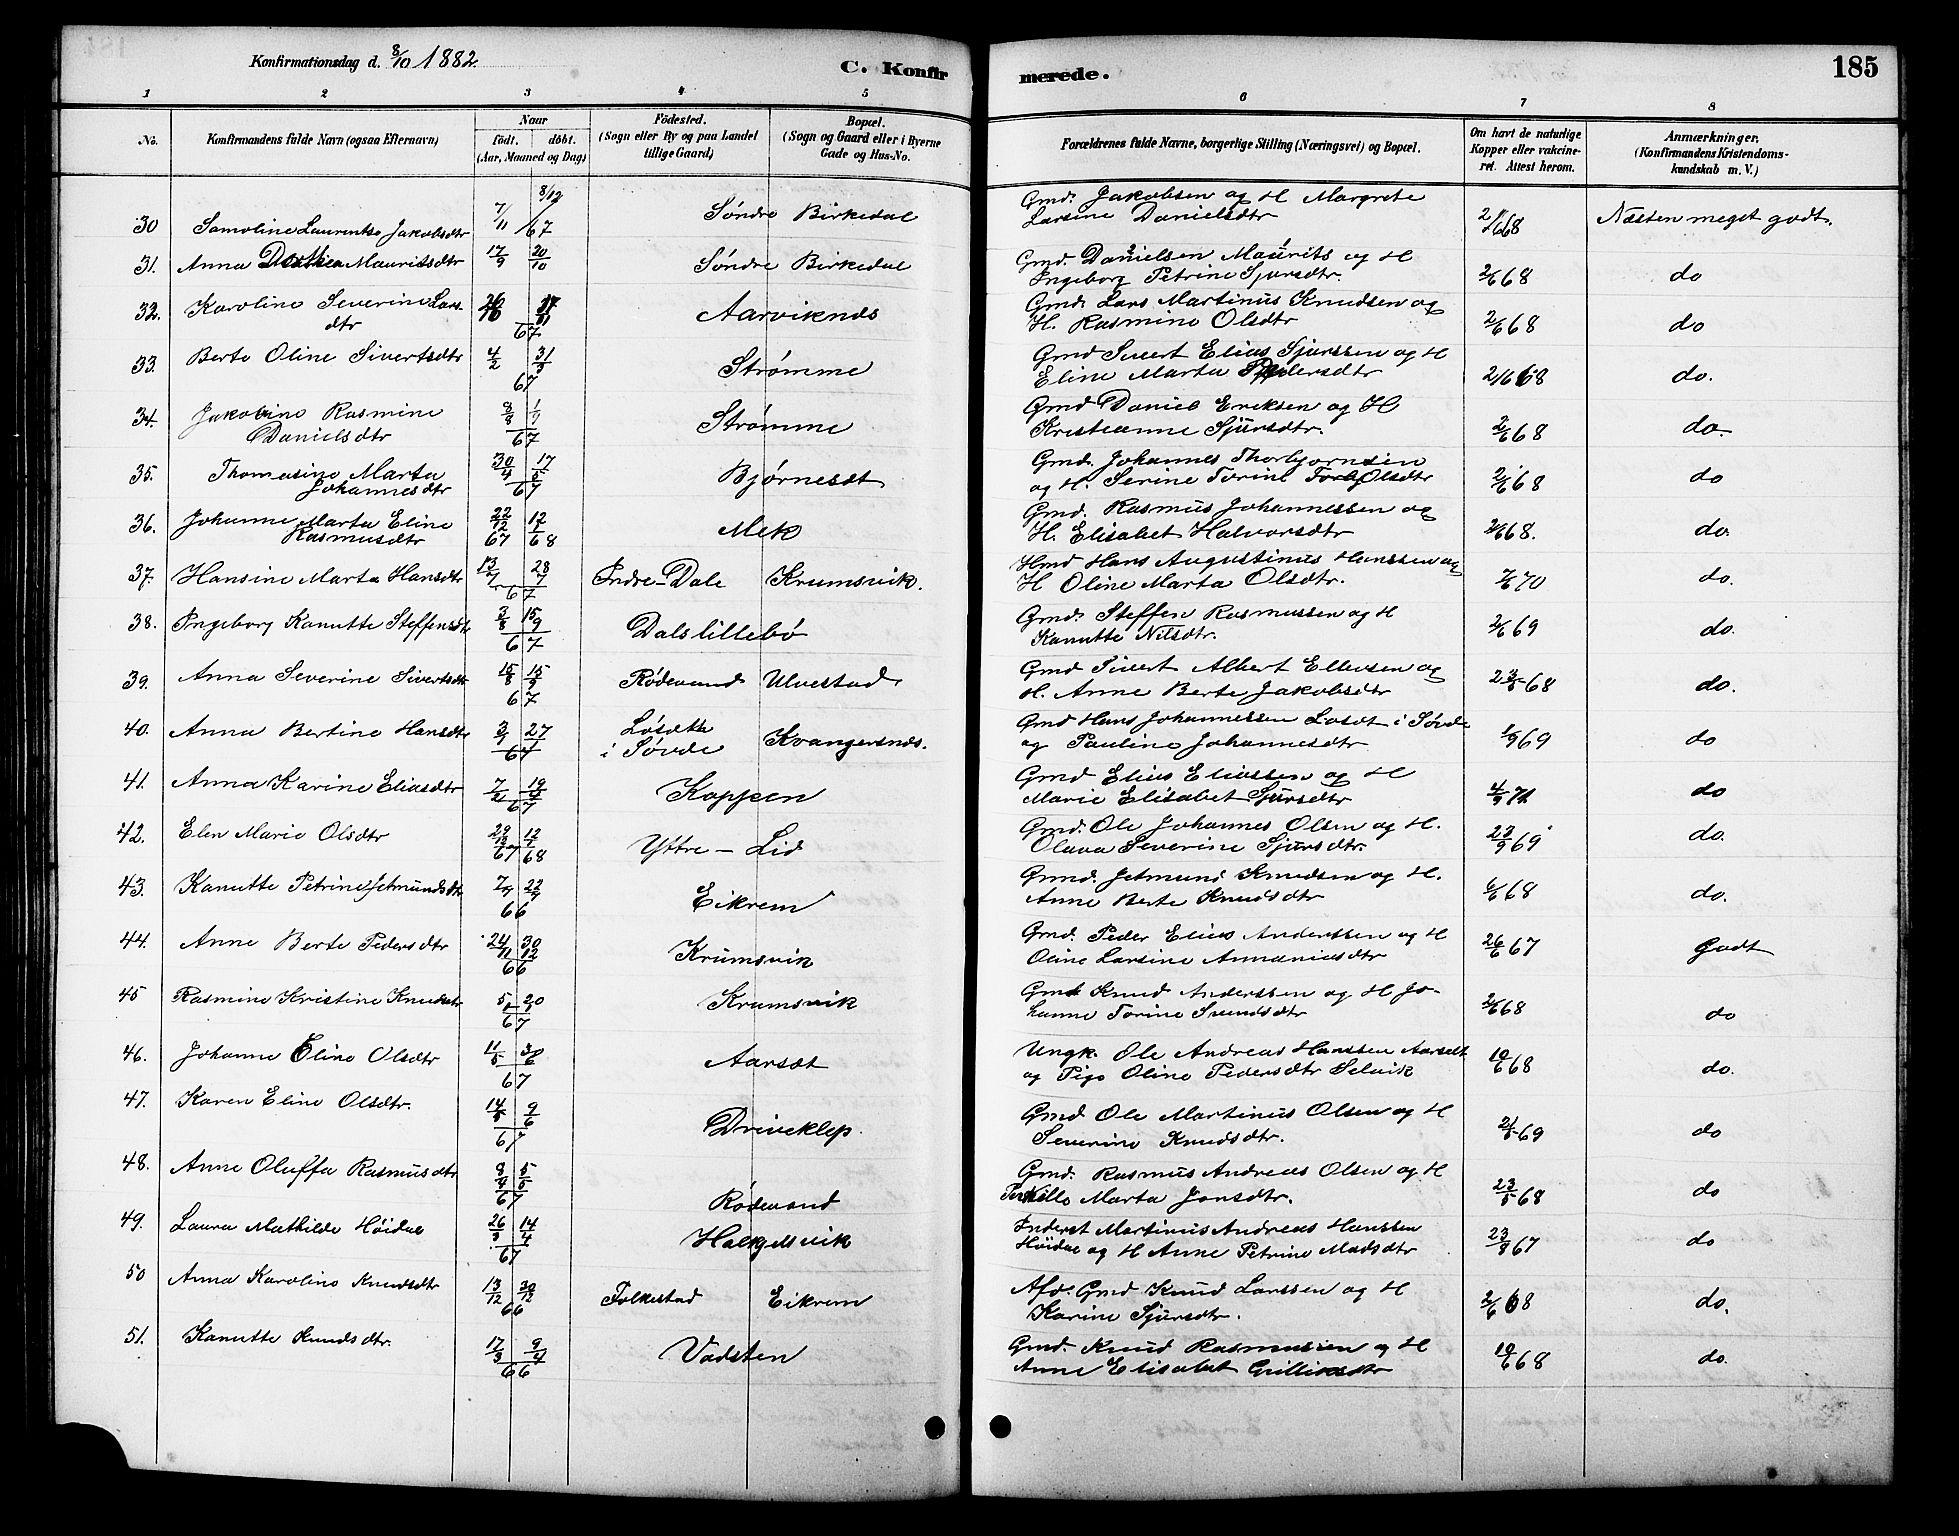 Konfirmationsdag d. 8/10 1882. C. Konfirmerede. 185
1 2 3 4 5 6 7 8
No. Konfirmandens fulde Navn (ogsaa Efternavn) Naar født. døbt. (Aar, Maaned og Dag) Fødested. (Sogn eller By og paa Landet tillige Gaard) Bopæl. (Sogn og Gaard eller i Byerne Gade og Hus-No. Forældrenes fulde Navne, borgerlige Stilling (Næringsvei) og Bopæl. Om havt de naturlige Kopper eller vakcineret. Attest herom. Anmærkninger, (Konfirmandens Kristendomskundskab m. V.)
30 Samoline Laurentse Jakobsdtr 7/11 8/12 67 Søndre Birkedal Gmd. Jakobsen og H Margrete
Larsine Danielsdtr 2/6 68 Næsten meget godt.
31. Anna Dorthea Mauritsdtr 17/9 20/10 Søndre Birkedal Gmd. Danielsen Maurits og H
Ingeborg Petrine Sjursdtr. 2/6 68 do
32. Karoline Severine Lars-
dtr 67 Aarviknes Gmd. Lars Martinus Knudsen og
H. Rasmine Olsdtr 2/6 68 do
33. Berte Oline Sivertsdtr 4/2 31/3 67 Strømme Gmd Sivert Elias Sjurssen og H
Eline Marta Pedersdtr 2/6 68 do.
34. Jakobine Rasmine
Danielsdtr 67 Strømme Gmd Daniel Eriksen og H
Kristianne Sjursdtr. 2/6 68 do.
35. Thomasine Marta
Johannesdtr 30/4 17/5 67 Bjørneset Gmd. Johannes Thorbjørnsen
og H. Serine Torine Olsdtr 2/6 68 do
36. Johanne Marta Eline
Rasmusdtr 22/12 67 12/1 68 Mek Gmd. Rasmus Johannessen og
H. Elisabet Halvorsdtr 2/6 68. do.
37. Hansine Marta Hansdtr 13/7 28/7 67 Indre-Dale Krumsvik. Hmd Hans Augustinus Hanssen og
H Oline Marta Olsdtr. 70 do.
38. Ingeborg Kanutte Steffensdtr 3/8 15/9 67 Dalslillebø Gmd. Steffen Rasmussen og H
Kanutte Nilsdtr. 2/6 69 do.
39. Anna Severine Sivertsdtr 15/8 15/9 67 Rødesand Ulvestad Gmd Sivert Albert Ellevsen og
H. Anne Berte Jakobsdtr 68 do.
40. Anna Bertine Hansdtr 67 Løsdette
i Søvde Kvangersnes. Gmd Hans Johannessen Løsdt i Søvde
og Pauline Johannesdtr 69 do
41. Anna Karine Eliasdtr 67 Koppen Gmd Elias Eliassen og H
Marie Elisabet Sjursdtr 4/9 71 do
42. Elen Marie Olsdtr 67 68 Yttre-Lid Gmd. Ole Johannes Olsen og H.
Olava Severine Sjursdtr. 23/9 69 do.
43. Kanutte Petrine Jetmundsdtr 66 Eikrem Gmd. Jetmund Knudsen og H.
Anne Berte Knudsdtr 68 do.
44. Anne Berte Pedersdtr 24/11 30/12 66 Krumsvik Gmd. Peder Elias Anderssen og H
Oline Larsine Annaniasdtr 26/6 67 Godt
45 Rasmine Kristine Knudsdtr 67 Krumsvik Gmd Knud Anderssen og H Jo-
hanne Torine Svendsdtr 2/6 68 do
46. Johanne Eline Olsdtr 11/5 67 Aarset Ungk. Ole Andreas Hanssen Aarset
og Pige Oline Pedersdtr Selvik 10/6 68 do.
47. Karen Eline Olsdtr. 14/5 9/6 67 Driveklep. Gmd Ole Martinus Olsen og H
Severine Knudsdtr. 69 do
48. Anne Oluffa Rasmusdtr 67 Rødesand Gmd. Rasmus Andreas Olsen og H
Pernille Marta Jonsdtr. 23/5 68 do
49. Laura Mathilde Høidal 26/3 14/4 67 Halkjelsvik Inderst Martinus Andreas Hanssen
Høidal og H Anne Petrine Madsdtr 23/8 67 do
50 Anna Karoline Knudsdtr 13/12 30/12 66 Folkestad Eikrem Afd. Gmd Knud Larssen og H
Karine Sjursdtr. 2/6 68 do.
51. Kanutte Knudsdtr. 17/3 9/4 66 Vadsten Gmd. Knud Rasmussen og H
Anne Elisabet 10/6 68 do.